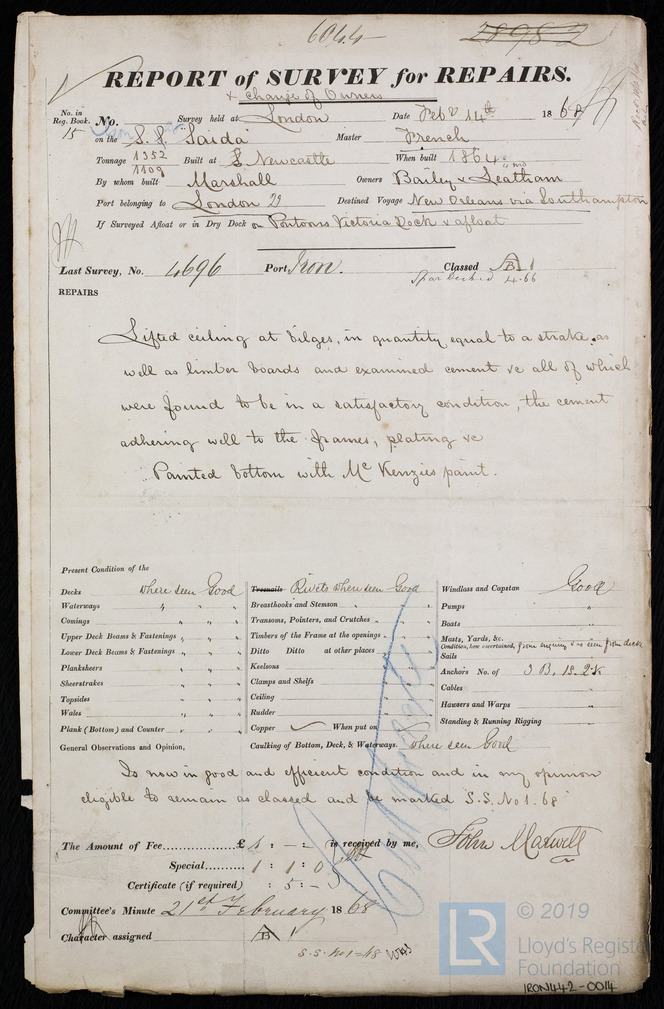 6044
28982
REPORT of SURVEY for REPAIRS.
x Change of Owners
No. in Reg. Book. No. Survey held at London Date Feby 14th 1868
15 on the S.S. "Saida" Master French
Tonnage 1352 1109 Built at S. Newcastle When built 1864
By whom built Marshall Owners Bailey & Leatham
Port belonging to London 29 Destined Voyage New Orleans via Southampton
If Surveyed Afloat or in Dry Dock on Pontoons Victoria Dock & afloat
Last Survey, No. 4696 Port Iron. Classed A B 1
Spar decked 4.66
REPAIRS
Lifted ceiling at bilges, in quantity equal to a strake, as
well as limber boards and examined cement &c all of which
were found to be in a satisfactory condition, the cement
adhering well to the frames, plating &c
Painted bottom with McKenzies paint.
Present Condition of the
Decks where seen Good
Waterways " " "
Comings " " "
Upper Deck Beams & Fastenings " " "
Lower Deck Beams & Fastenings " " "
Planksheers " " "
Sheerstrakes " " "
Topsides " " "
Wales " " "
Plank (Bottom) and Counter " " "
Treenails Rivets where seen Good
Breasthooks and Stemson " "
Transoms, Pointers, and Crutches " "
Timbers of the Frame at the openings " "
Ditto Ditto at other places " "
Keelsons " "
Clamps and Shelfs " "
Ceiling " "
Rudder " "
Copper When put on
Caulking of Bottom, Deck, & Waterways. where seen Good
Windlass and Capstan Good
Pumps "
Boats "
Masts, Yards, &c.
Condition, how ascertained, from enquiry & as seen from deck
Sails "
Anchors No. of 3 B, 1 S, 2 K
Cables "
Hawsers and Warps "
Standing & Running Rigging "
General Observations and Opinion,
Is now in good and efficient condition and in my opinion
eligible to remain as classed and be marked S.S. No 1. 68
The Amount of Fee £ 1 : - : (is received by me, John Maxwell
Special 1 : 1 : 0
Certificate (if required) : 5 : -
Committee's Minute 21st February 1868
Character assigned A B 1
S.S. No 1-68
LR © 2019
Lloyd's Register
Foundation
IRON442-0014